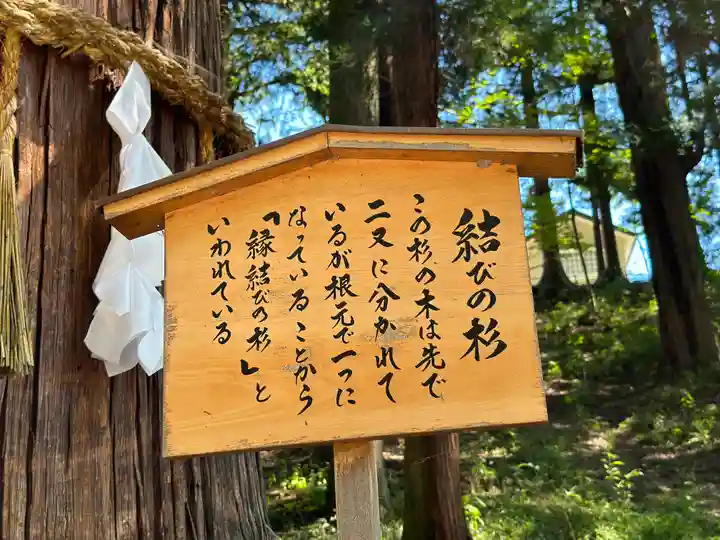 結びの杉
この杉の木は先で
二又に分かれて
いるが根元で一つに
なっていることから
「縁結びの杉」と
いわれている